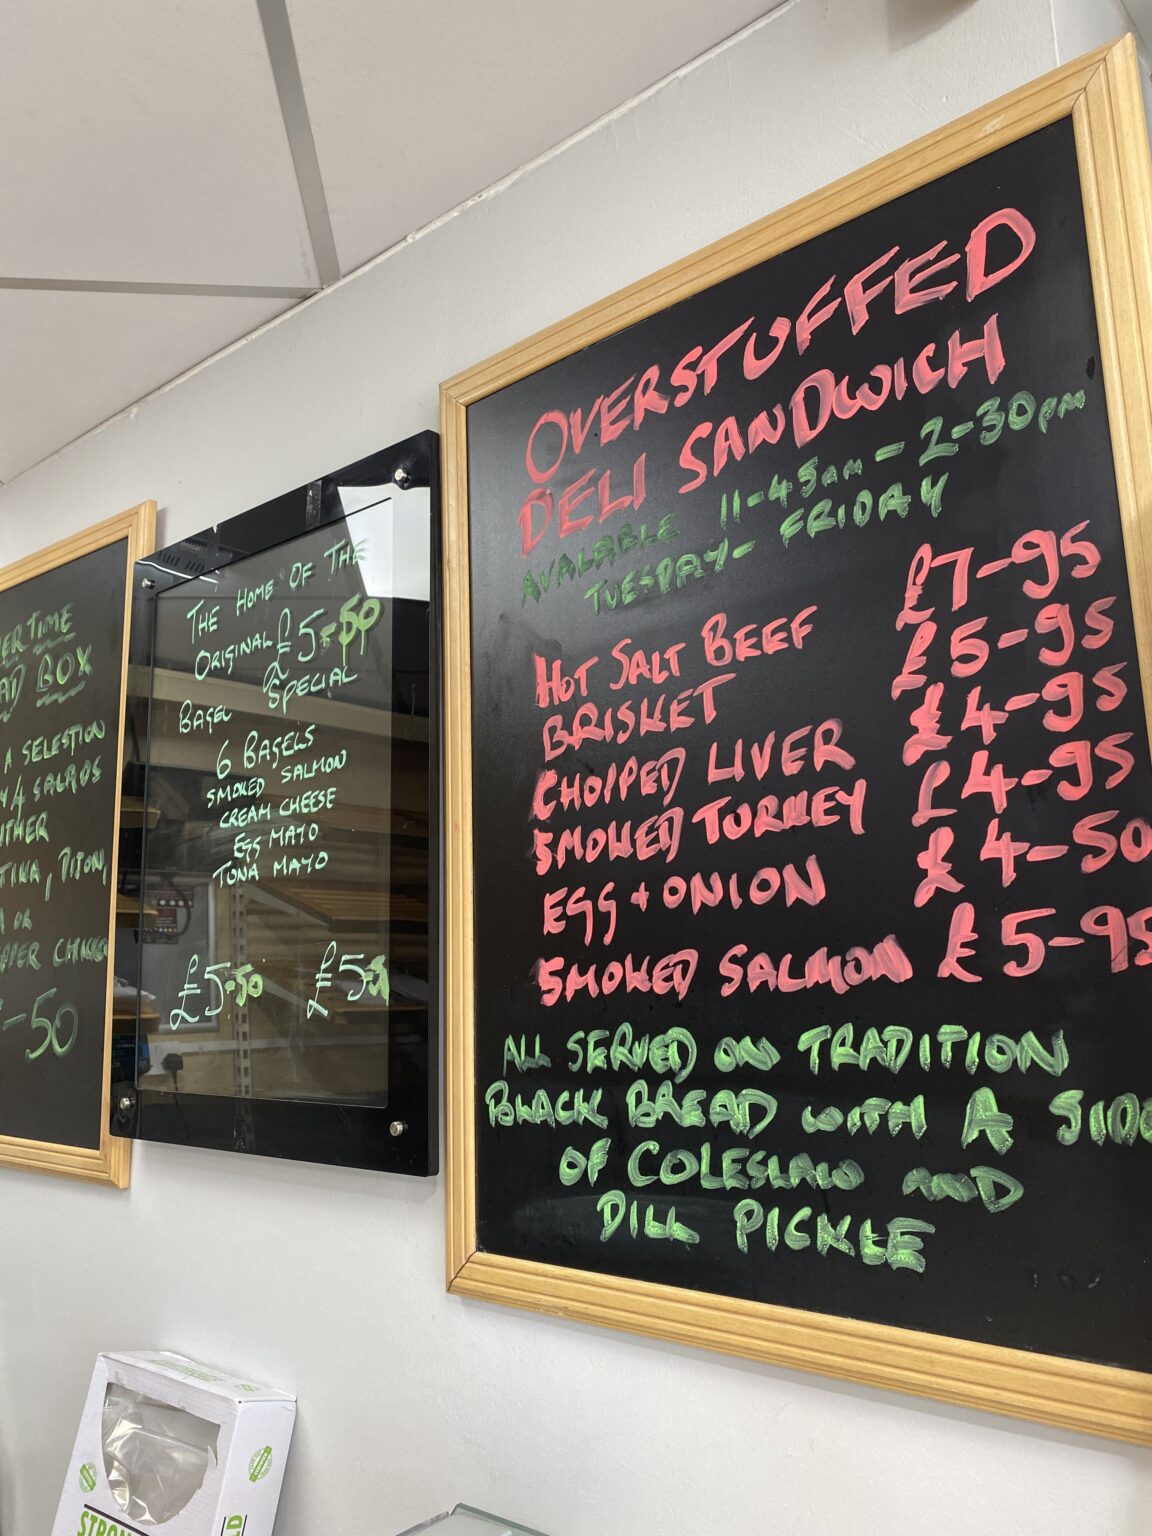 TIME
BOX
A SELECTION
4 SALADS
THE HOME OF THE
ORIGINAL £5-50
BAGEL SPECIAL
6 BAGELS
SMOKED SALMON
CREAM CHEESE
EGG MAYO
TUNA MAYO
£5-50 £5-5
OVERSTUFFED
DELI SANDWICH
AVALABLE 11-45am - 2-30pm
TUESDAY - FRIDAY
HOT SALT BEEF £7-95
BRISKET £5-95
CHOPPED LIVER £4-95
SMOKED TURKEY £4-95
EGG + ONION £4-50
SMOKED SALMON £5-95
ALL SERVED ON TRADITION
BLACK BREAD WITH A SIDE
OF COLESLAW AND
DILL PICKLE
-50
STRON